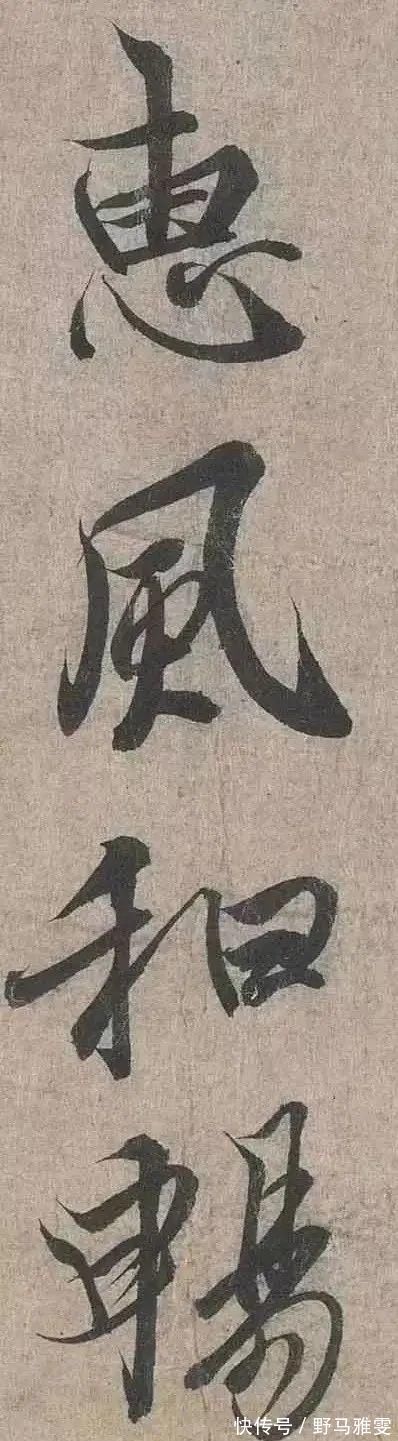 惠風和暢
快传号／野马雅雯